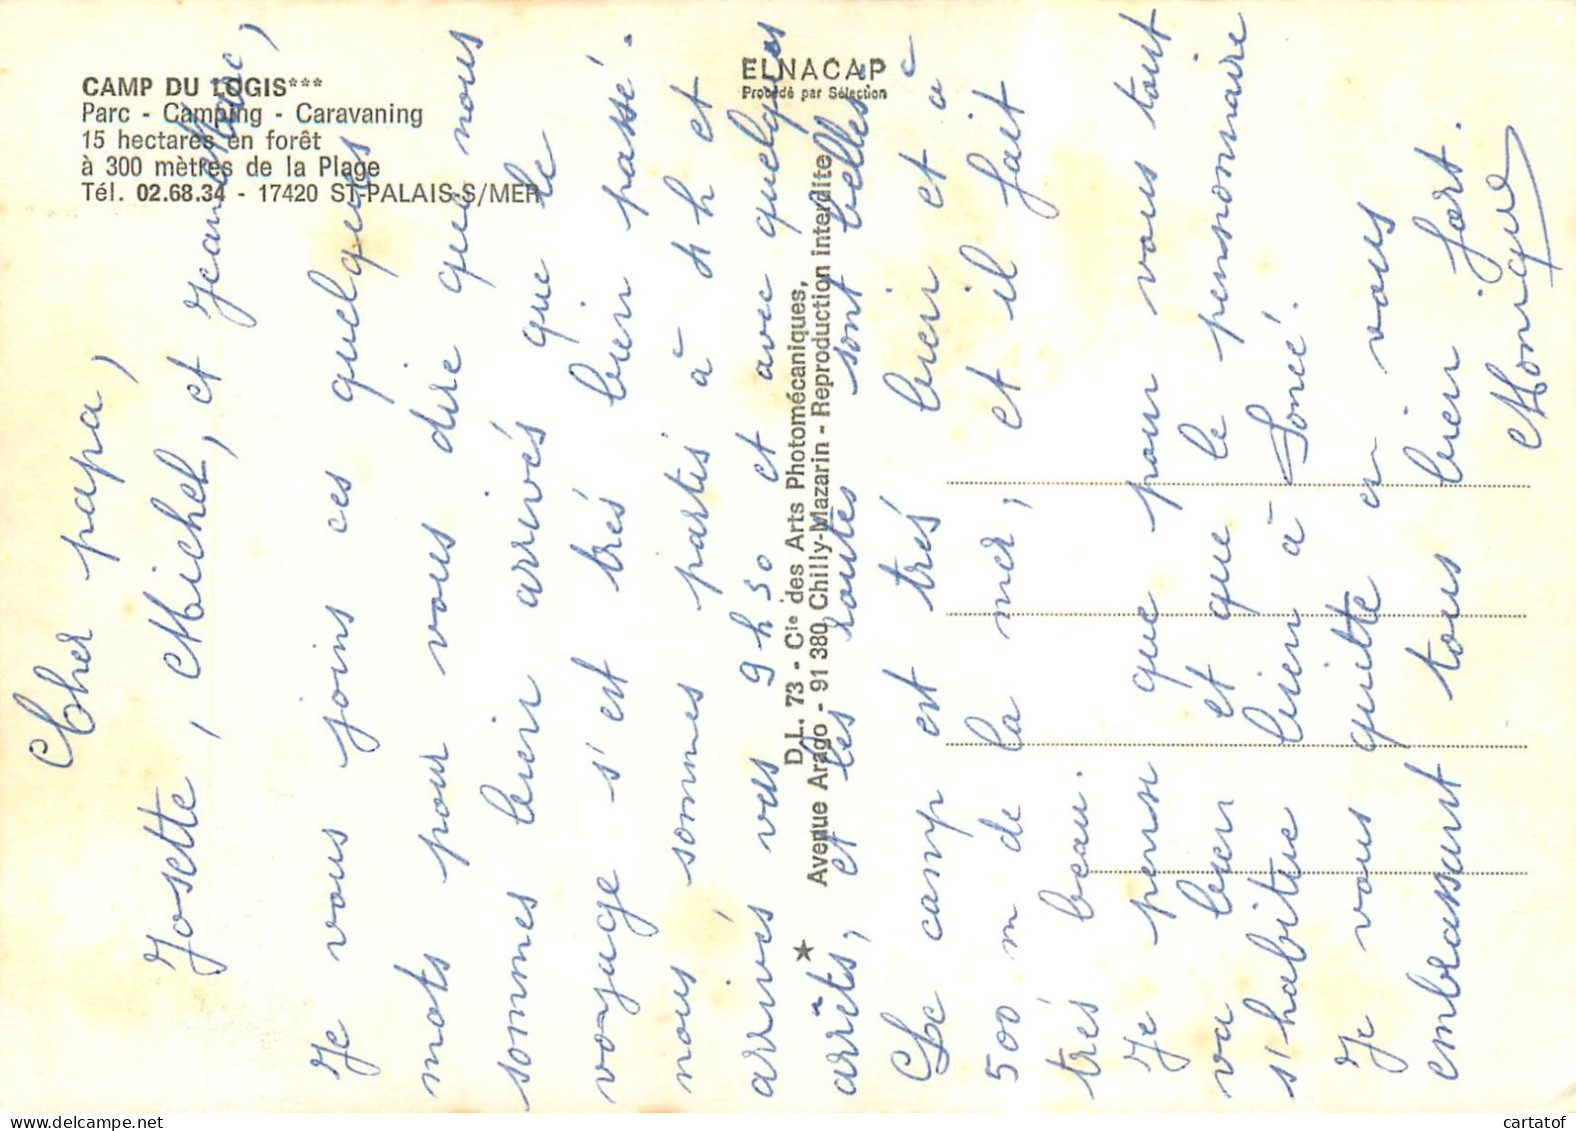 CAMP DU LOGIS***
Parc - Camping - Caravaning
15 hectares en forêt
à 300 mètres de la Plage
Tél. 02.68.34 - 17420 ST-PALAIS-S/MER
ELNACAP
Procédé par Sélection
D.L. 73 - Cie des Arts Photomécaniques,
★ Avenue Arago - 91 380 Chilly-Mazarin - Reproduction interdite
Cher papa,
Josette, Michel, et Jean Marc,
Je vous joins ces quelques
mots pour vous dire que nous
sommes bien arrivés que le
voyage s'est trés bien passé.
nous sommes partis à 4 h et
arrivés vers 9 h 30 et avec quelques
arrêts, et les routes sont belles
Le camp est trés bien et a
500 m de la mer, et il fait
trés beau.
Je pense que pour vous tout
va bien et que le pensionnaire
s'habitue bien à
Je vous quitte en vous
embrassant tous bien fort.
Monique
cartatof